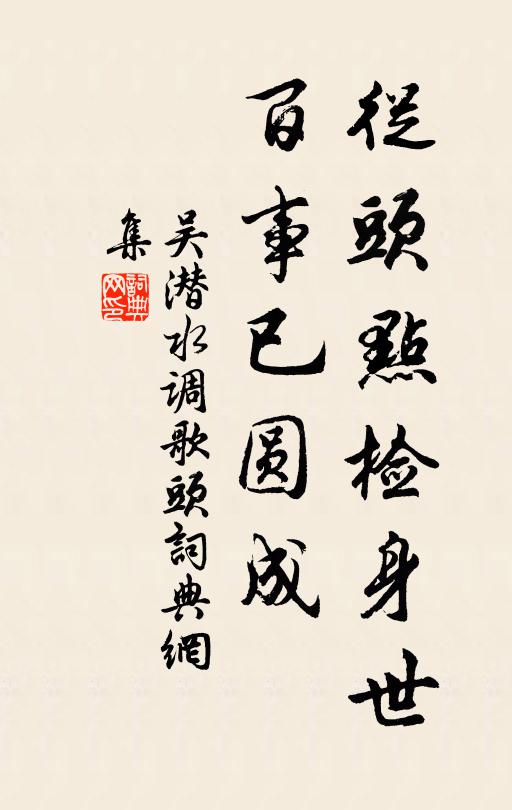 從頭點检身世
百事已圆成
吴潜水调歌頭詞典網
集
詞典
网印